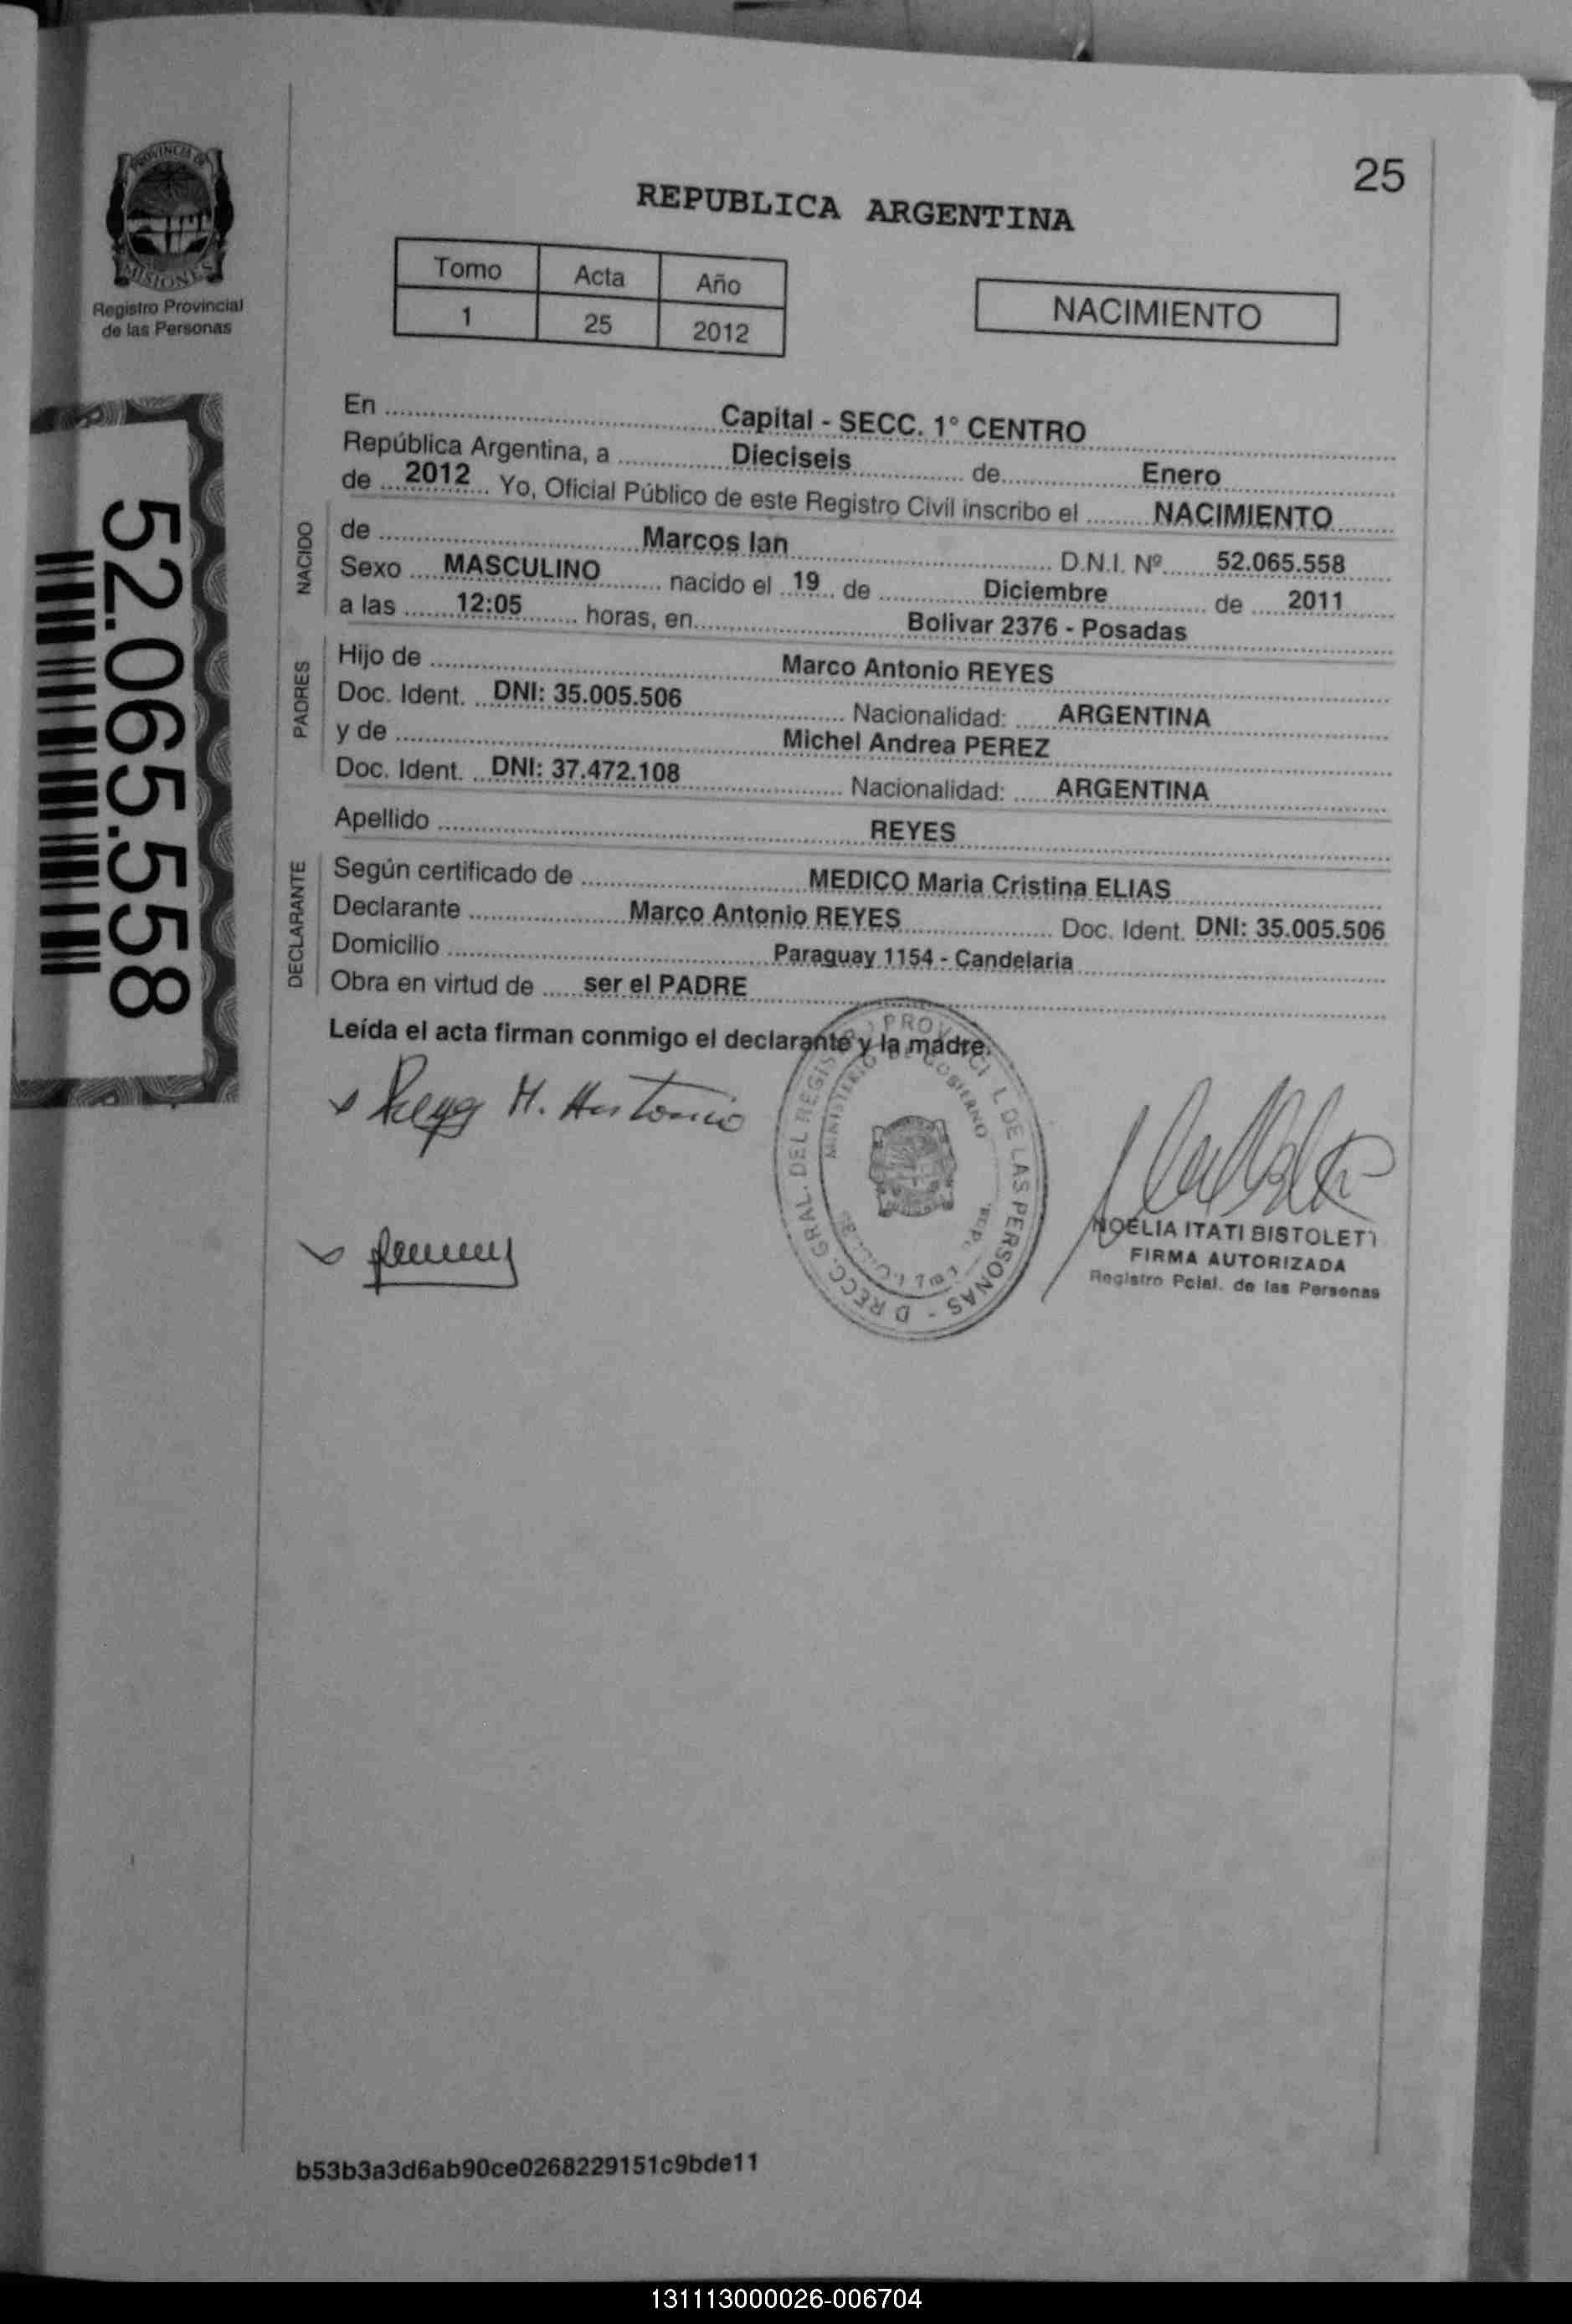 25
REPUBLICA ARGENTINA
PROVINCIA DE
MISIONES
Registro Provincial
de las Personas
Tomo Acta Año
1 25 2012
NACIMIENTO
52.065.558
En Capital - SECC. 1° CENTRO
República Argentina, a Dieciseis de Enero
de 2012 Yo, Oficial Público de este Registro Civil inscribo el NACIMIENTO
NACIDO
de Marcos Ian D.N.I. Nº 52.065.558
Sexo MASCULINO nacido el 19 de Diciembre de 2011
a las 12:05 horas, en Bolivar 2376 - Posadas
PADRES
Hijo de Marco Antonio REYES
Doc. Ident. DNI: 35.005.506 Nacionalidad: ARGENTINA
y de Michel Andrea PEREZ
Doc. Ident. DNI: 37.472.108 Nacionalidad: ARGENTINA
Apellido REYES
DECLARANTE
Según certificado de MEDICO Maria Cristina ELIAS
Declarante Marco Antonio REYES Doc. Ident. DNI: 35.005.506
Domicilio Paraguay 1154 - Candelaria
Obra en virtud de ser el PADRE
Leída el acta firman conmigo el declarante y la madre.
M. Antonio
GRAL. DEL REGIS PROVINCI L DE LAS PERSONAS
MINISTERIO DE GOBIERNO
NOELIA ITATI BISTOLETI
FIRMA AUTORIZADA
Registro Pcial. de las Personas
b53b3a3d6ab90ce0268229151c9bde11
131113000026-006704